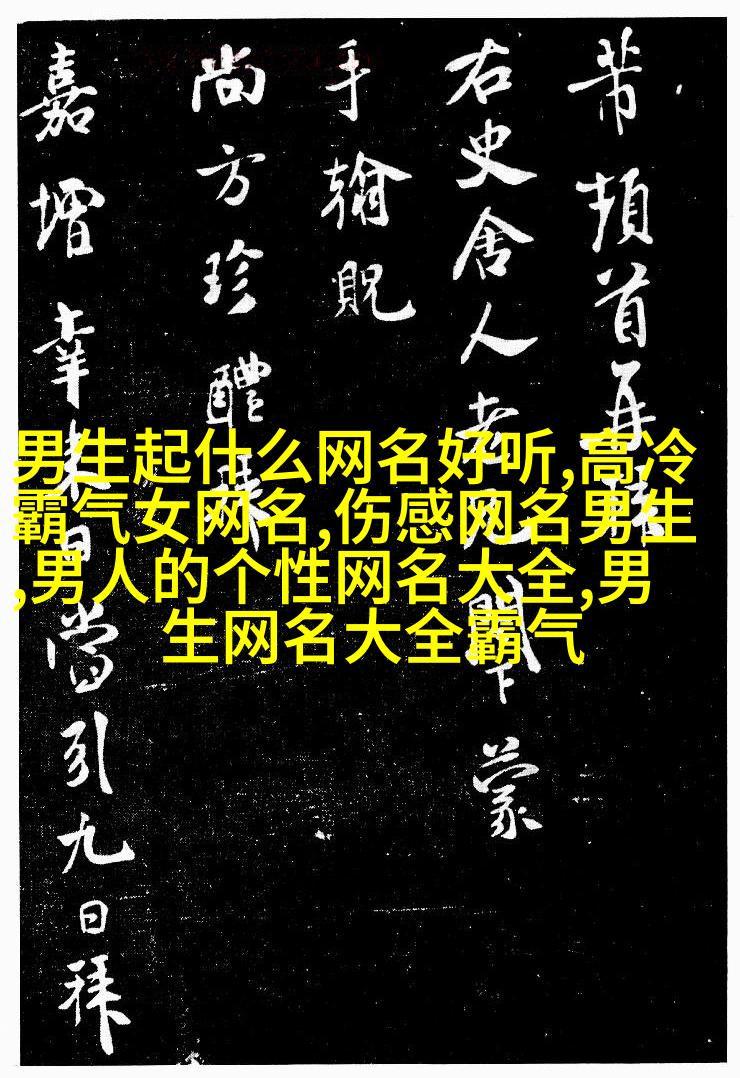 芾頓首再拜
右史舍人老兄閣下蒙
手翰貺
尚方珍醴
嘉增幸來日當引九日拜
男生起什么网名好听,高冷
霸气女网名,伤感网名男生
,男人的个性网名大全,男
生网名大全霸气